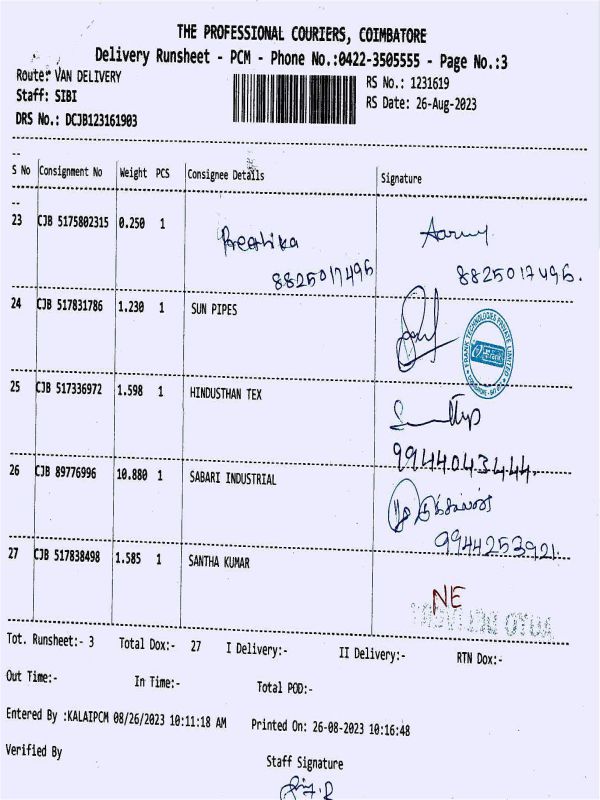 THE PROFESSIONAL COURIERS, COIMBATORE
Delivery Runsheet - PCM - Phone No.:0422-3505555 - Page No.:3
Route: VAN DELIVERY
RS No.: 1231619
Staff: SIBI
RS Date: 26-Aug-2023
DRS No.: DCJB123161903
S No Consignment No Weight PCS Consignee Details Signature
23 CJB 5175802315 0.250 1
8825017496 8825017496.
24 CJB 517831786 1.230 1 SUN PIPES
25 CJB 517336972 1.598 1 HINDUSTHAN TEX
9944043444.
26 CJB 89776996 10.880 1 SABARI INDUSTRIAL
9944253921.
27 CJB 517838498 1.585 1 SANTHA KUMAR
NE
Tot. Runsheet:- 3 Total Dox:- 27 I Delivery:- II Delivery:- RTN Dox:-
Out Time:- In Time:- Total POD:-
Entered By :KALAIPCM 08/26/2023 10:11:18 AM Printed On: 26-08-2023 10:16:48
Verified By
Staff Signature